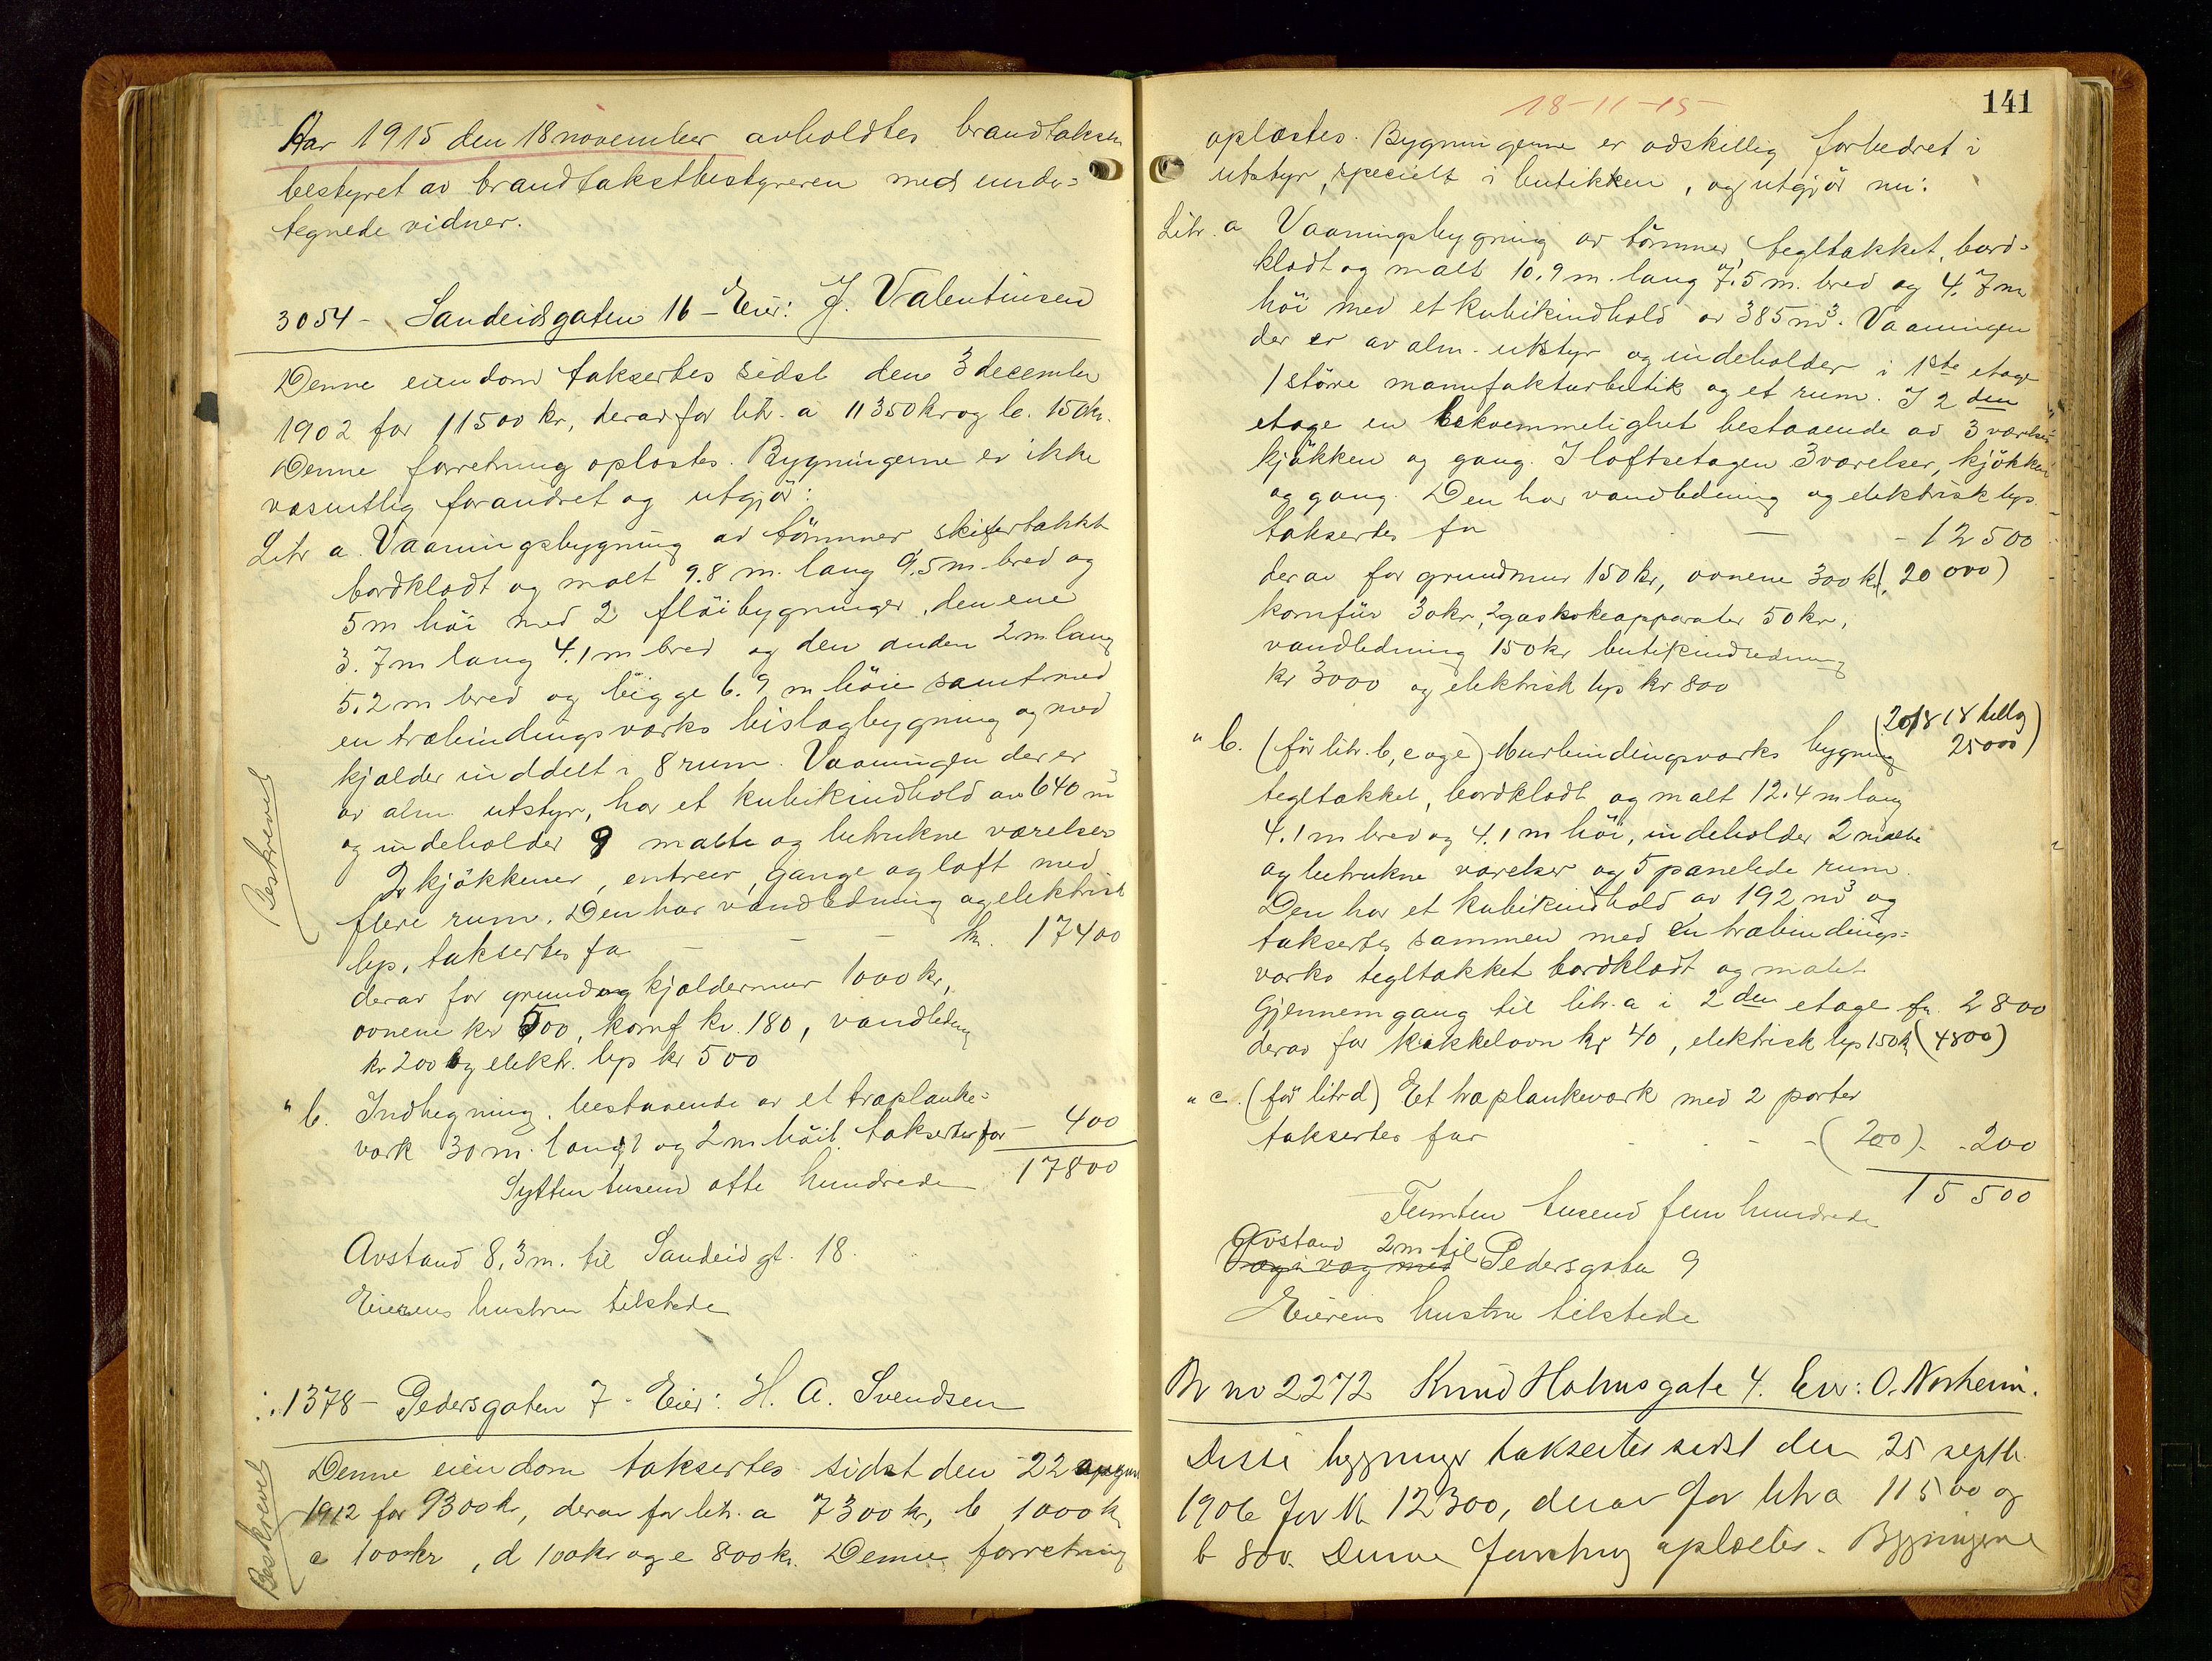 Aar 1915 den 18 november avholdtes brandtaksten
bestyret av brandtakstbestyreren med under=
tegnede vidner.
3054 - Sandeidsgaten 16 - Eier: J. Valentinsen
Denne eiendom taksertes sidst den 3 december
1902 for 11500 kr, derav for litr. a 11350 kr og b. 150 kr.
Denne forretning oplæstes. Bygningerne er ikke
væsentlig forandret og utgjør:
Litr a. Vaaningsbygning av tömmer skifertækket
bordklædt og malt 9.8 m. lang 9.5 m. bred og
5 m höi med 2 flöibygninger, den ene
3.7 m lang 4.1 m bred og den anden 2 m lang
5.2 m bred og begge 6.9 m höie samt med
en træbindingsværks bislagbygning og med
kjælder inddelt i 8 rum. Vaaningen der er
av alm. utstyr, har et kubikindhold av 640 m³
og indeholder 9 malte og betrukne værelser
2 kjökkener, entreer, gange og loft med
flere rum. Den har vandledning og elektrisk
lys, taksertes for - - - kr. 17400
derav for grund og kjældermur 1000 kr,
ovnene kr 500, komf kr. 180, vandledning
kr 200 og elektr. lys kr 500
" b. Indhegning, bestaaende av et træplanke=
værk 30 m. langt og 2 m höit taksertes for - 400
17800
Sytten tusend otte hundrede
Avstand 8,3 m. til Sandeidgt. 18.
Eierens hustru tilstede
Beskrevet
1378 - Pedersgaten 7 - Eier: H. A. Svendsen
Denne eiendom taksertes sidst den 22 august
1912 for 9300 kr, derav for litr. a 7300 kr, b 1000 kr,
c 100 kr, d 100 kr og e 800 kr. Denne forretning
Beskrevet
18-11-15
141
oplæstes. Bygningerne er adskillig forbedret i
utstyr, specielt i butikken, og utgjör nu:
Litr. a Vaaningsbygning av tömmer tegltækket, bord=
klædt og malt 10.9 m. lang 7.5 m. bred og 4.7 m
höi med et kubikindhold av 385 m³. Vaaningen
der er av alm. utstyr og indeholder i 1ste etage
1 större manufakturbutik og et rum. I 2den
etage en bekvemmelighet bestaaende av 3 værelser
kjökken og gang. I loftsetagen 3 værelser, kjökken
og gang. Den har vandledning og elektrisk lys.
taksertes for - - 12500
derav for grundmur 150 kr, ovnene 300 kr, (20 000)
komfür 30 kr, 2 gaskokeapparater 50 kr,
vandledning 150 kr butikindredning
kr 3000 og elektrisk lys kr 800
(20/8 18 tillæg
25000)
" b. (för litr. b, c og e) Murbindingsværks bygning
tegltækket, bordklædt og malt 12.4 m lang
4.1 m bred og 4.1 m höi, indeholder 2 malte
og betrukne værelser og 5 panelede rum.
Den har et kubikindhold av 192 m³ og
taksertes sammen med en træbindings=
værks tegltækket bordklædt og malet
gjennemgang til litr. a i 2den etage for 2800
derav for kakkelovn kr 40, elektrisk lys 150 kr (4800)
" c. (för litr d) Et træplankeværk med 2 porter
taksertes for - - - (200) - 200
15 500
Femten tusend fem hundrede
Avstand 2 m til
Væg i væg med Pedersgaten 9
Eierens hustru tilstede
Br no 2272 Knud Holmsgate 4. Eier: O. Norheim.
Disse bygninger taksertes sidst den 25 septbr.
1906 for kr 12300, derav for litr a 11500 og
b 800. Denne forretning oplæstes. Bygningerne